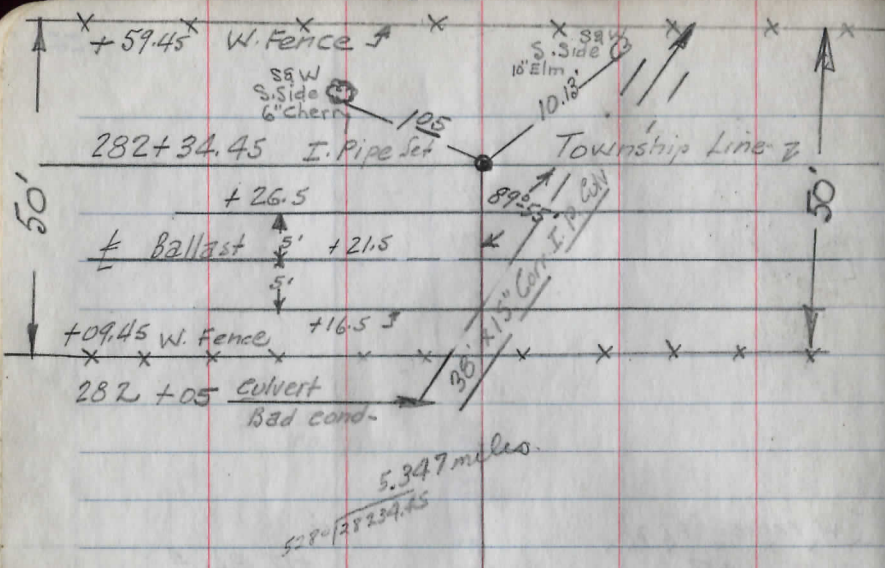 +59.45 W. Fence
S&W
S. Side
6" Cherry
S&W
S. Side
10" Elm
10.5
10.13'
282+34.45 I. Pipe Set Township Line
+26.5
89°55'
50'
50'
Ballast 5' +21.5
5'
+09.45 W. Fence +16.5
38' x 15" Corr. I. P. Culv
282 +05 Culvert
Bad cond-
5.347 miles
5280 28234.45